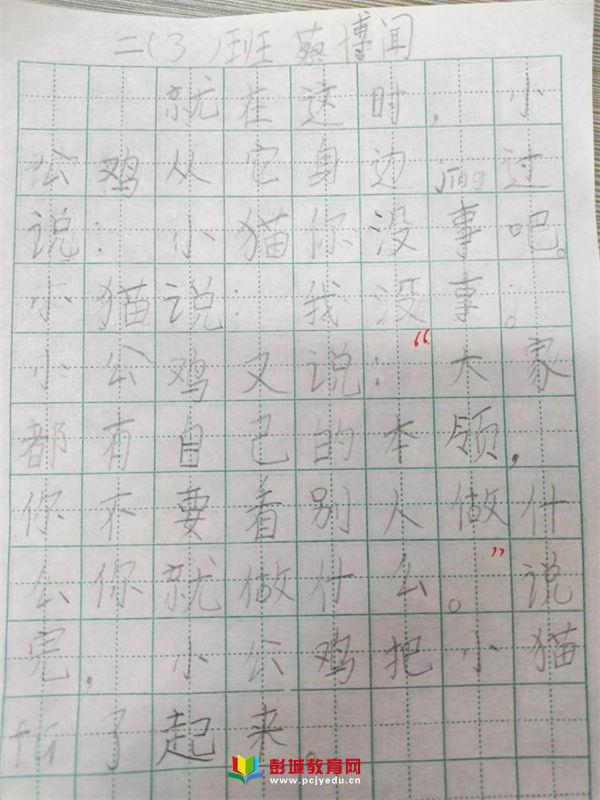 二(3)班 蔡博闻
就在这时,小
公鸡从它身边jing过
说:小猫你没事吧。
小猫说:我没事。
小公鸡又说:“大家
都有自己的本领,
你不要看别人做什
么你就做什么。”说
完,小公鸡把小猫
了起来。
彭城教育网
www.pcjyedu.cn